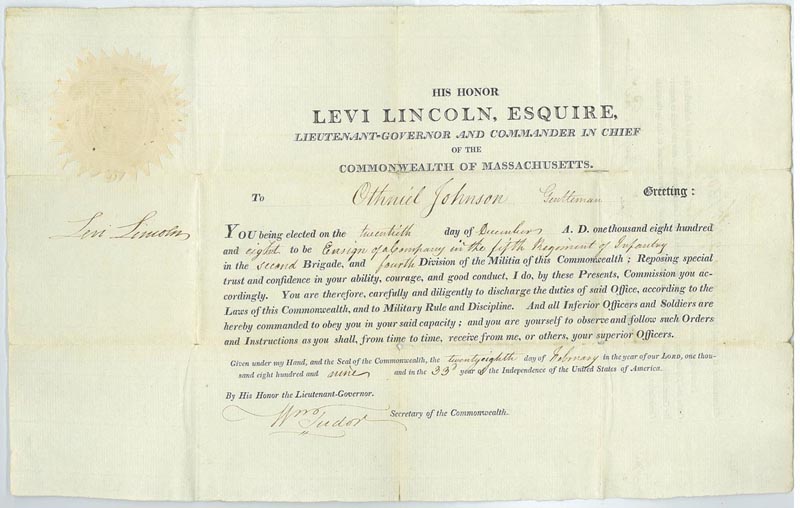 HIS HONOR
LEVI LINCOLN, ESQUIRE,
LIEUTENANT-GOVERNOR AND COMMANDER IN CHIEF
OF THE
COMMONWEALTH OF MASSACHUSETTS.
To Othniel Johnson Gentleman Greeting:
Levi Lincoln
YOU being elected on the twentieth day of December A. D. one thousand eight hundred
and eight to be Ensign of a Company in the fifth Regiment of Infantry
in the second Brigade, and fourth Division of the Militia of this Commonwealth; Reposing special
trust and confidence in your ability, courage, and good conduct, I do, by these Presents, Commission you ac-
cordingly. You are therefore, carefully and diligently to discharge the duties of said Office, according to the
Laws of this Commonwealth, and to Military Rule and Discipline. And all Inferior Officers and Soldiers are
hereby commanded to obey you in your said capacity; and you are yourself to observe and follow such Orders
and Instructions as you shall, from time to time, receive from me, or others, your superior Officers.
Given under my Hand, and the Seal of the Commonwealth, the twentyeighth day of February in the year of our LORD, one thou-
sand eight hundred and nine and in the 33d year of the Independence of the United States of America.
By His Honor the Lieutenant-Governor.
Wm Tudor Secretary of the Commonwealth.